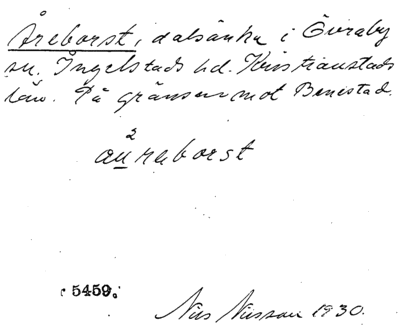 Åreborst, dalsänka i Övraby
sn. Ingelstads hd. Kristianstads
län. På gränsen mot Benestad.
2
au̲reborst
5459.
Nils Nilsson 1930.